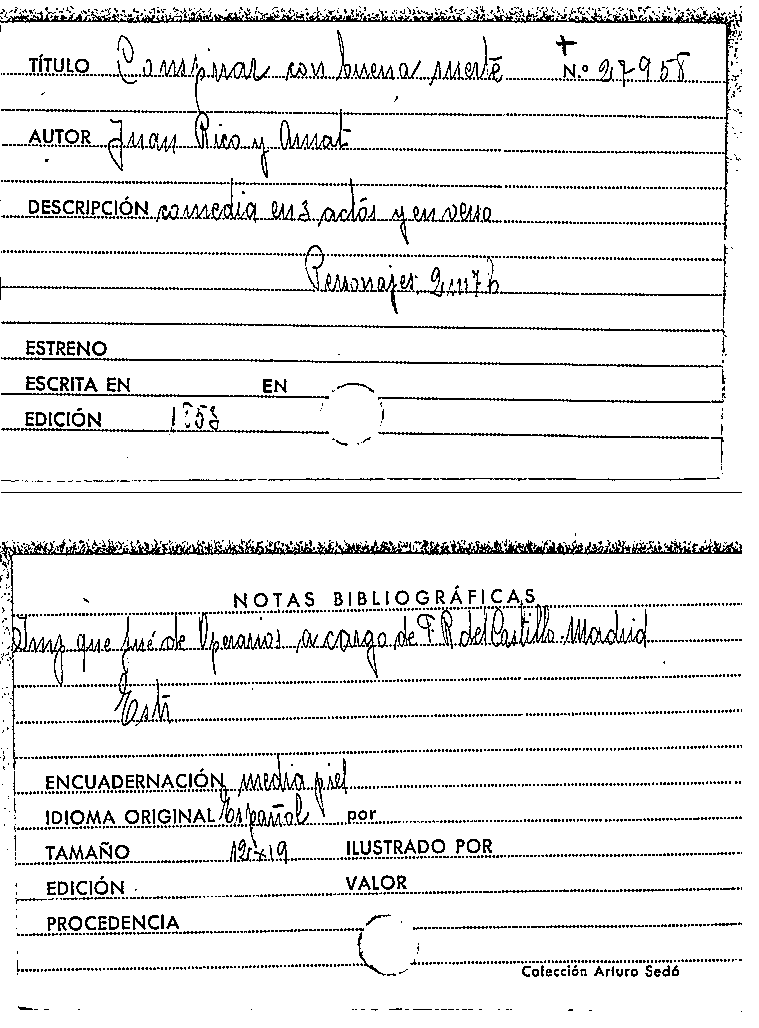 TÍTULO Conspirar con buena suerte N.º 27958
AUTOR Juan Rico y Amat
DESCRIPCIÓN comedia en 3 actos y en verso
Personajes 2m 7h
ESTRENO
ESCRITA EN EN
EDICIÓN 1853
NOTAS BIBLIOGRÁFICAS
Imp que fué de Operarios a cargo de F. R. del Castillo. Madrid
ENCUADERNACIÓN media piel
IDIOMA ORIGINAL Español por
TAMAÑO 12x19 ILUSTRADO POR
EDICIÓN VALOR
PROCEDENCIA
Colección Arturo Sedó